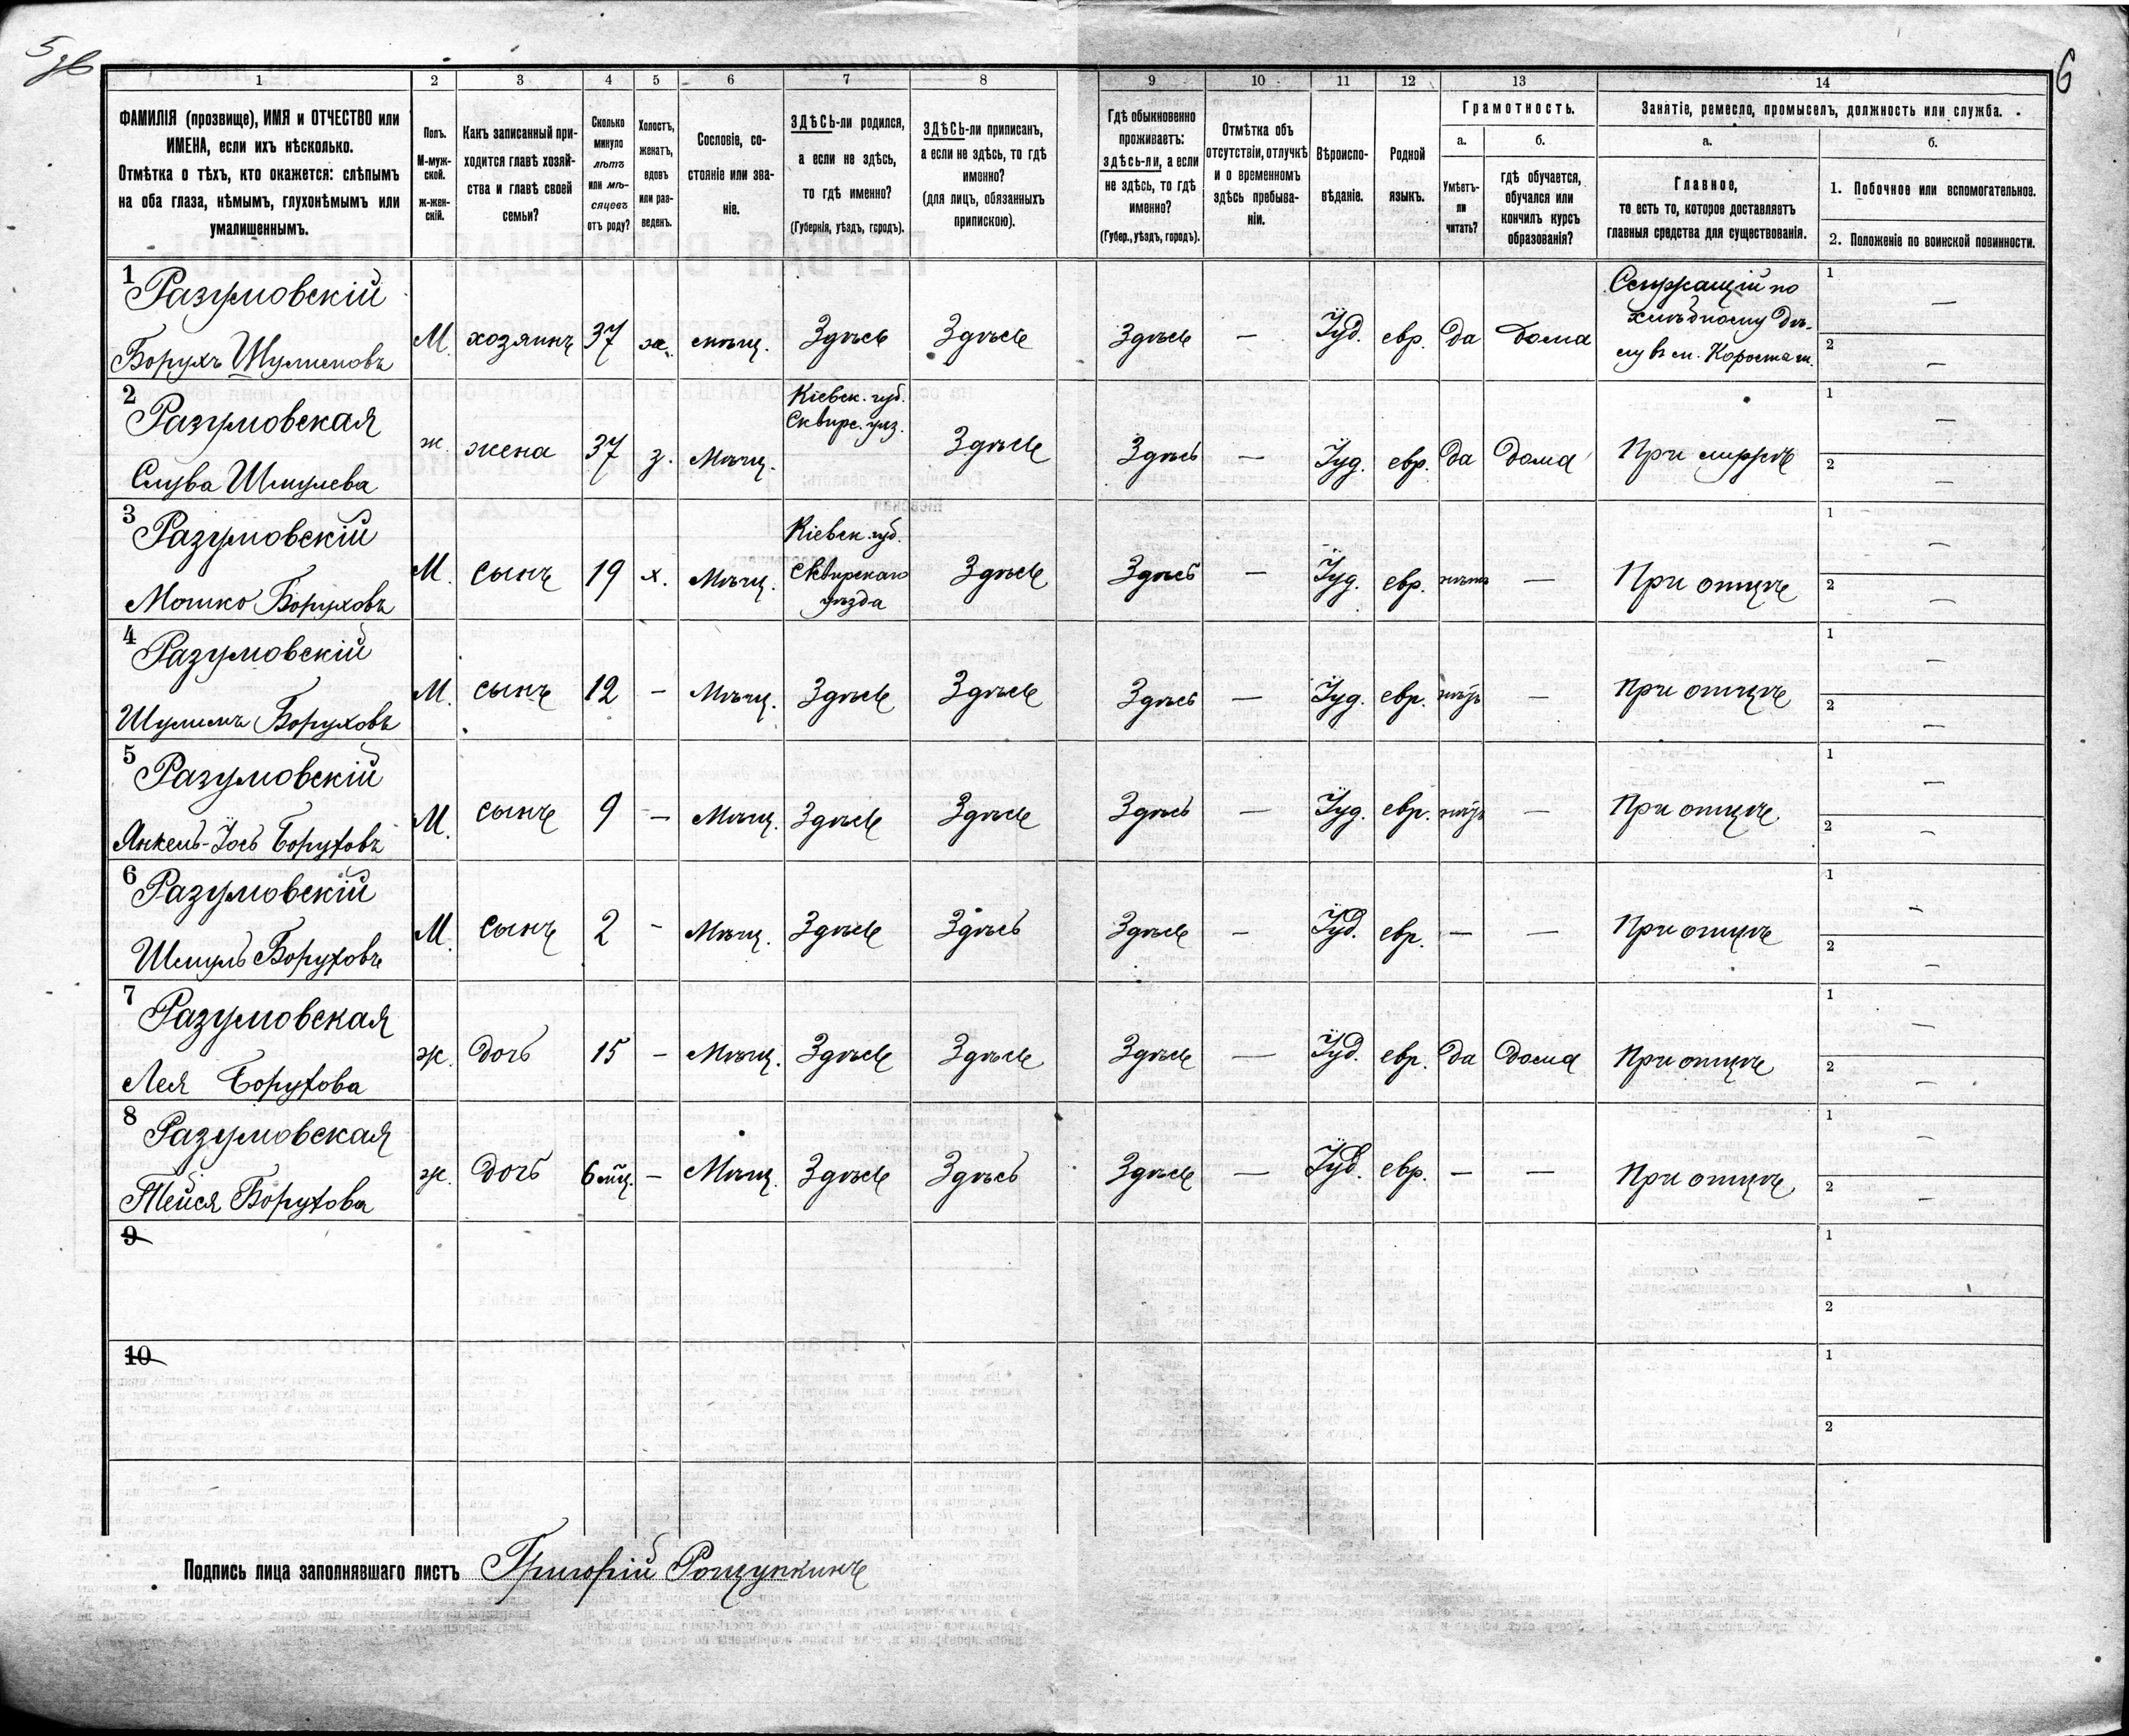 5 об
6
1
2
3
4
5
6
7
8
9
10
11
12
13
14
ФАМИЛІЯ (прозвище), ИМЯ и ОТЧЕСТВО или
ИМЕНА, если ихъ нѣсколько.
Отмѣтка о тѣхъ, кто окажется: слѣпымъ
на оба глаза, нѣмымъ, глухонѣмымъ или
умалишеннымъ.
Полъ.
М-муж-
ской.
ж-жен-
скій.
Какъ записанный при-
ходится главѣ хозяй-
ства и главѣ своей
семьи?
Сколько
минуло
лѣтъ
или мѣ-
сяцевъ
отъ роду?
Холостъ,
женатъ,
вдовъ
или раз-
веденъ.
Сословіе, со-
стояніе или зва-
ніе.
ЗДѢСЬ-ли родился,
а если не здѣсь,
то гдѣ именно?
(Губернія, уѣздъ, городъ).
ЗДѢСЬ-ли приписанъ,
а если не здѣсь, то гдѣ
именно?
(для лицъ, обязанныхъ
припискою).
Гдѣ обыкновенно
проживаетъ:
здѣсь-ли, а если
не здѣсь, то гдѣ
именно?
(Губер., уѣздъ, городъ).
Отмѣтка объ
отсутствіи, отлучкѣ
и о временномъ
здѣсь пребыва-
ніи.
Вѣроиспо-
вѣданіе.
Родной
языкъ.
Грамотность.
а.
Умѣетъ-
ли
читать?
б.
гдѣ обучается,
обучался или
кончилъ курсъ
образованія?
Занятіе, ремесло, промыселъ, должность или служба.
а.
Главное,
то есть то, которое доставляетъ
главныя средства для существованія.
б.
1. Побочное или вспомогательное.
2. Положеніе по воинской повинности.
1 Разумовскій
Борухъ Шулимовъ
М. хозяинъ 37 ж. мѣщ. Здѣсь Здѣсь Здѣсь — Іуд. евр. да дома
Служащій по
хлѣбному дѣ-
лу в м.
1 —
2 —
2 Разумовская
Слува Шмулева
ж. жена 37 з. Мѣщ.
Кіевск. губ.
Сквирс. уѣз.
Здѣсь Здѣсь — Іуд. евр. да дома При мужѣ
1 —
2 —
3 Разумовскій
Мошко Боруховъ
М. сынъ 19 х. Мѣщ.
Кіевск. губ.
Сквирскаго
уѣзда
Здѣсь Здѣсь — Іуд. евр. нѣтъ — При отцѣ
1 —
2 —
4 Разумовскій
Шулимъ Боруховъ
М. сынъ 12 — Мѣщ. Здѣсь Здѣсь Здѣсь — Іуд. евр. нѣтъ — При отцѣ
1 —
2 —
5 Разумовскій
Янкель-Іось Боруховъ
М. сынъ 9 — Мѣщ. Здѣсь Здѣсь Здѣсь — Іуд. евр. нѣтъ — При отцѣ
1 —
2 —
6 Разумовскій
Шмуль Боруховъ
М. сынъ 2 - Мѣщ. Здѣсь Здѣсь Здѣсь — Іуд. евр. — — При отцѣ
1 —
2 —
7 Разумовская
Лея Борухова
ж. дочь 15 — Мѣщ. Здѣсь Здѣсь Здѣсь — Іуд. евр. да дома При отцѣ
1 —
2 —
8 Разумовская
Тейся Борухова
ж. дочь 6 мц. — Мѣщ. Здѣсь Здѣсь Здѣсь — Іуд. евр. — — При отцѣ
1 —
2 —
9
1
2
10
1
2
Подпись лица заполнявшаго листъ Григорій Рощупкинъ